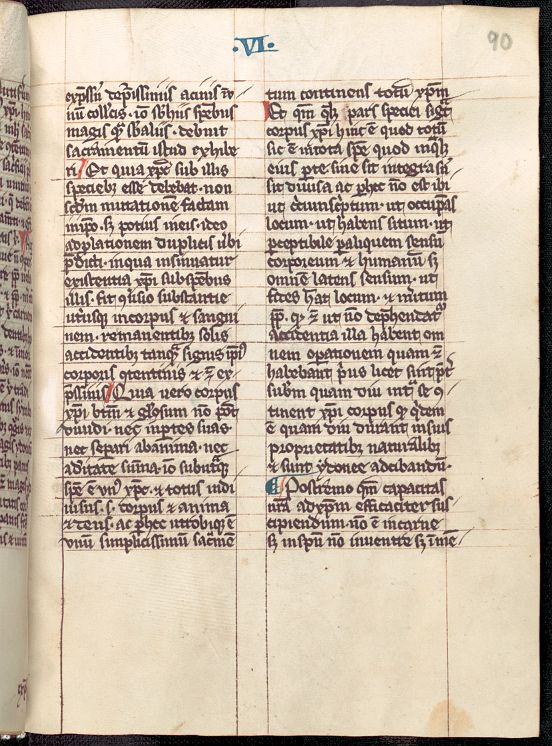 ·VI·
90
exp̄ssū dep̄ssissimis acinis ī vi
nū coll̄cis· iō sb̄ hiis spēbus
magis q̄ƺ sb̄ aliis· debuit
sacramentū istud exhibe
ri Et quia xp̄c sub illis
speciebꝫ esse debebat· non
scd̄m mutationem factam
in ip̄o· sꝫ potius in eis· ideo
ad p̄lationem duplicis ūbi
p̄dicti· in qua insinuatur
existentia xp̄i sub spēbus
illis· fit ꝯuīsio substantie
utriusqꝫ in corpus et sangui
nem· remanentibꝫ solis
accidentibꝫ tanq̄ƺ signis ip̄iꝰ
corporis ꝯtentiuis ⁊ ēt ex
p̄ssiuis Quia uero corpus
xp̄i btm̄ ⁊ gl̄osum nō pōt
diuidi· nec in ꝑtes suas·
nec separi ab anima· nec
a diītate sūma· iō sub utͣqꝫ
spē ē vnꝰ xp̄c· ⁊ totus indi
uisus· s· corpus ⁊ anima
⁊ deus· ac ꝑ hec utrobiqꝫ ē
vnū simplicissimū sacͣmē
tum continens totū xp̄m
Et qm̄ qͣlꝫ pars speciei sigͣt
corpus xp̄i hinc ē quod totū
sic ē in tota spē· quod in qͣlꝫ
eius p̄te· siue sit integra siue
sit diuisa· ac ꝑ hec nō est ibi
ut cͥcūscͥptum· ut occupās
locum· ut habens situm· ut
ꝑceptibile ꝑ aliquem sensū
corporeum ⁊ humanū sꝫ
omnē latens sensum· ut
fides hēat locum· ⁊ mͥitum
ꝓp̄ qͥ· ēt ut nō dephendatͬ
accidentia illa habent om
nem oꝑationem quam ēt
habebant pͥus licet sint p̄t
subm̄ quam diu intͣ se ꝯ
tinent xp̄i corpus qͥ qͥdem
ē quam diu durant in suis
proprietatibꝫ naturalibꝫ
⁊ sunt ydonee ad cibandū·
Postremo qm̄ capacitas
nrā ad xp̄m efficaciter sus
cipiendum· nō ē in carne
sꝫ in spū· nō in ventre sꝫ ī mē